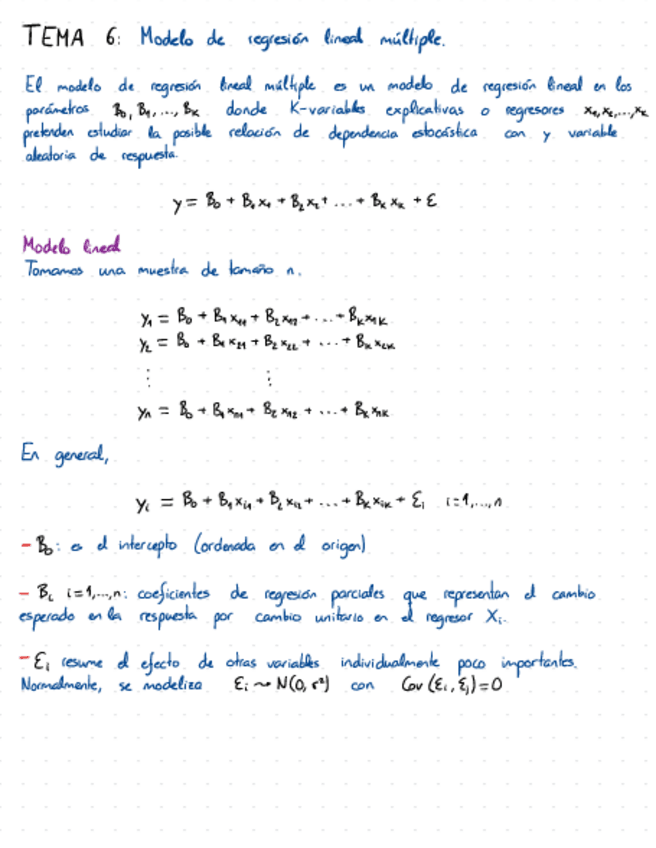 TEMA 6: Modelo de regresión lineal múltiple.
El modelo de regresión lineal múltiple es un modelo de regresión lineal en los
parámetros B₀, B₁, ..., Bₖ donde K-variables explicativas o regresores x₁, x₂, ..., xₖ
pretenden estudiar la posible relación de dependencia estocástica con y variable
aleatoria de respuesta.
y = B₀ + B₁x₁ + B₂x₂ + ... + Bₖxₖ + ε
Modelo lineal
Tomamos una muestra de tamaño n.
y₁ = B₀ + B₁x₁₁ + B₂x₁₂ + ... + Bₖx₁ₖ
y₂ = B₀ + B₁x₂₁ + B₂x₂₂ + ... + Bₖx₂ₖ
⋮ ⋮
yₙ = B₀ + B₁xₙ₁ + B₂xₙ₂ + ... + Bₖxₙₖ
En general,
yᵢ = B₀ + B₁xᵢ₁ + B₂xᵢ₂ + ... + Bₖxᵢₖ + εᵢ i=1,...,n
- B₀: es el intercepto (ordenada en el origen)
- Bᵢ i=1,...,n: coeficientes de regresión parciales que representan el cambio
esperado en la respuesta por cambio unitario en el regresor Xᵢ.
- εᵢ resume el efecto de otras variables individualmente poco importantes.
Normalmente, se modeliza εᵢ ~ N(0, σ²) con Cov(εᵢ, εⱼ)=0